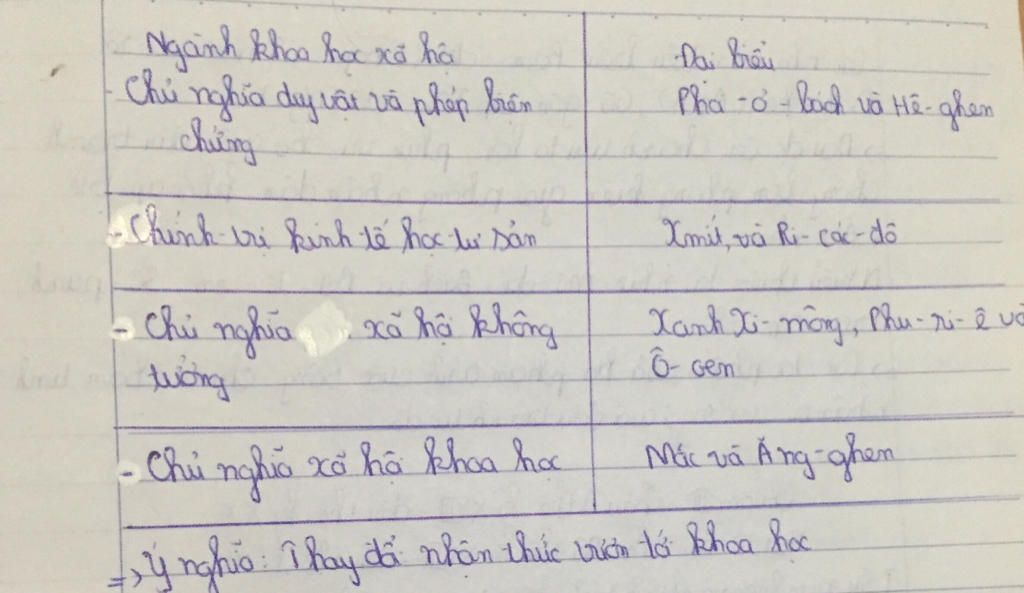 Ngành khoa học xã hội
Đại biểu
- Chủ nghĩa duy vật và phép biện
chứng
Phơ-ơ-bách và Hê-ghen
- Chính trị kinh tế học tư sản
Xmít, và Ri-các-đô
- Chủ nghĩa xã hội không
tưởng
Xanh Xi-mông, Phu-ri-ê và
Ô-oen
- Chủ nghĩa xã hội khoa học
Mác và Ăng-ghen
=> Ý nghĩa: Thay đổi nhận thức vươn tới khoa học